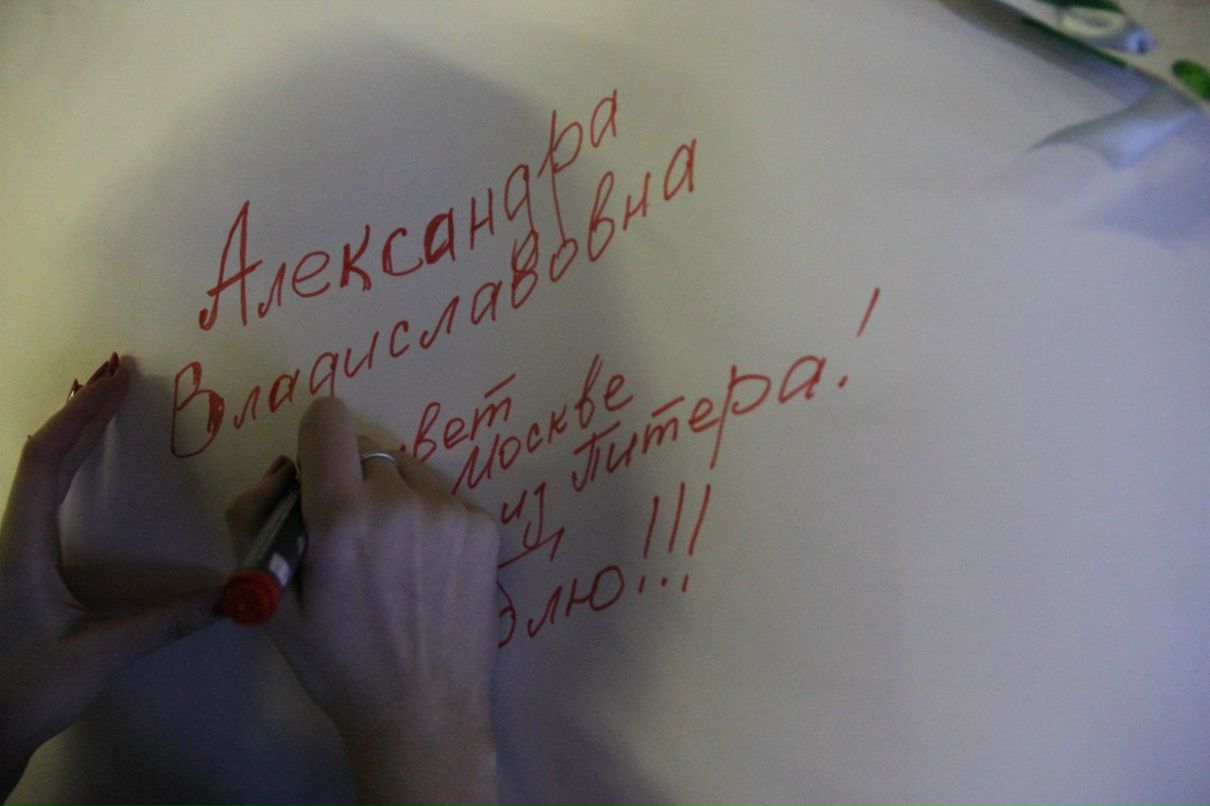 Александра
Владиславовна
вет
Москве
из Питера!
блю!!!